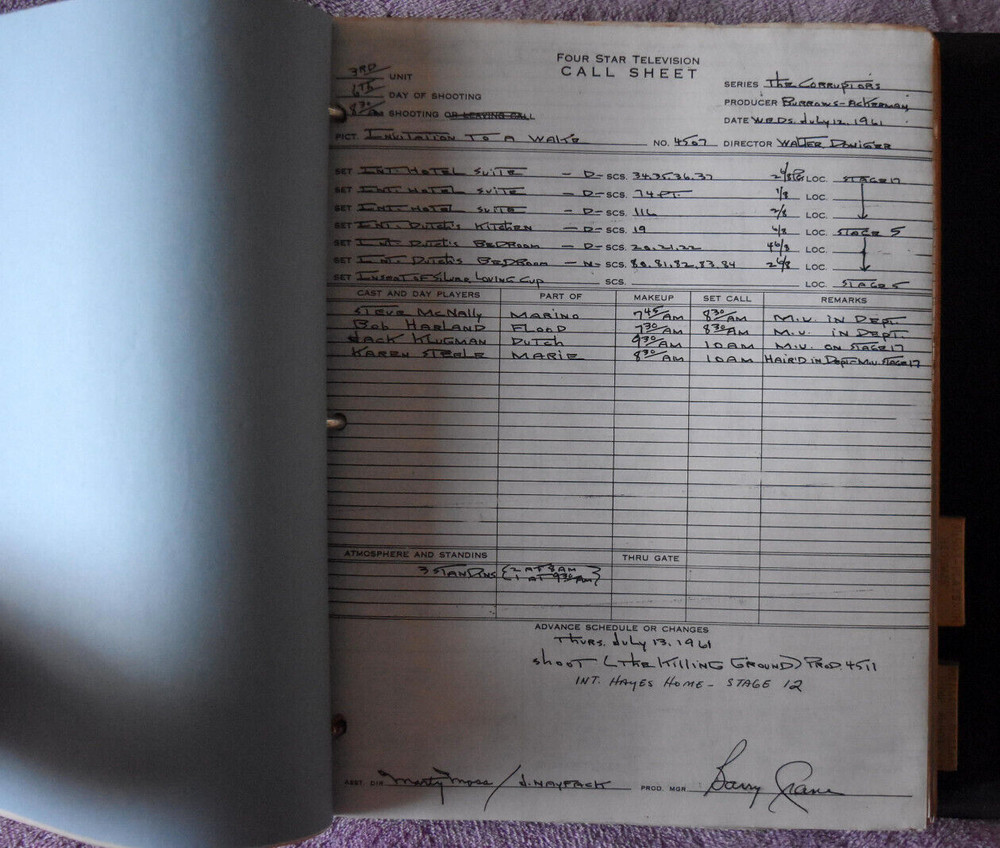 FOUR STAR TELEVISION
CALL SHEET
3RD UNIT
6TH DAY OF SHOOTING
8 30/AM SHOOTING OR LEAVING CALL
SERIES The CORRUPTORS
PRODUCER BURROWS-ACKERMAN
DATE WEDS. July 12, 1961
PICT. INVITATION TO A WAKE NO. 4507 DIRECTOR WALTER DONIGER
SET INT. HOTEL SUITE - D - SCS. 34.35.36.37 LOC. STAGE 17
SET INT. HOTEL SUITE - D - SCS. 74 PT. 1/8 LOC.
SET INT. HOTEL SUITE - D - SCS. 116 LOC.
SET INT. DUTCH'S KITCHEN - D - SCS. 19 LOC. STAGE 5
SET INT. DUTCH'S BEDROOM - D - SCS. 20.21.22 4 6/8 LOC.
SET INT. DUTCH'S BEDROOM - N - SCS. 80.81.82.83.84 LOC.
SET INSERT OF SILVER LOVING CUP SCS. LOC. STAGE 5
CAST AND DAY PLAYERS PART OF MAKEUP SET CALL REMARKS
STEVE McNALLY MARINO 7 45/AM 8 30/AM M.U. IN DEPT.
BOB HARLAND FLOOD 7 30/AM 8 30/AM M.U. IN DEPT.
JACK KLUGMAN DUTCH 9 30/AM 10 AM M.U. ON STAGE 17
KAREN STEELE MARIE 8 30/AM 10 AM HAIR'D IN DEPT-M.U. STAGE 17
ATMOSPHERE AND STANDINS THRU GATE
3 STANDINS {2 AT 8 AM
1 AT 9 30 AM}
ADVANCE SCHEDULE OR CHANGES
THURS. July 13, 1961
SHOOT (THE KILLING GROUND) PROD. 4511
INT. HAYES HOME - STAGE 12
ASST. DIR. Marty Moss / J. NAYFACK PROD. MGR. Barry Crane